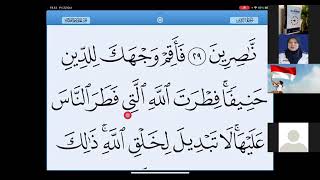 نَّـٰصِرِينَ ٢٩ فَأَقِمْ وَجْهَكَ لِلدِّينِ
حَنِيفًا ۚ فِطْرَتَ ٱللَّهِ ٱلَّتِي فَطَرَ ٱلنَّاسَ
عَلَيْهَا ۚ لَا تَبْدِيلَ لِخَلْقِ ٱللَّهِ ۚ ذَٰلِكَ